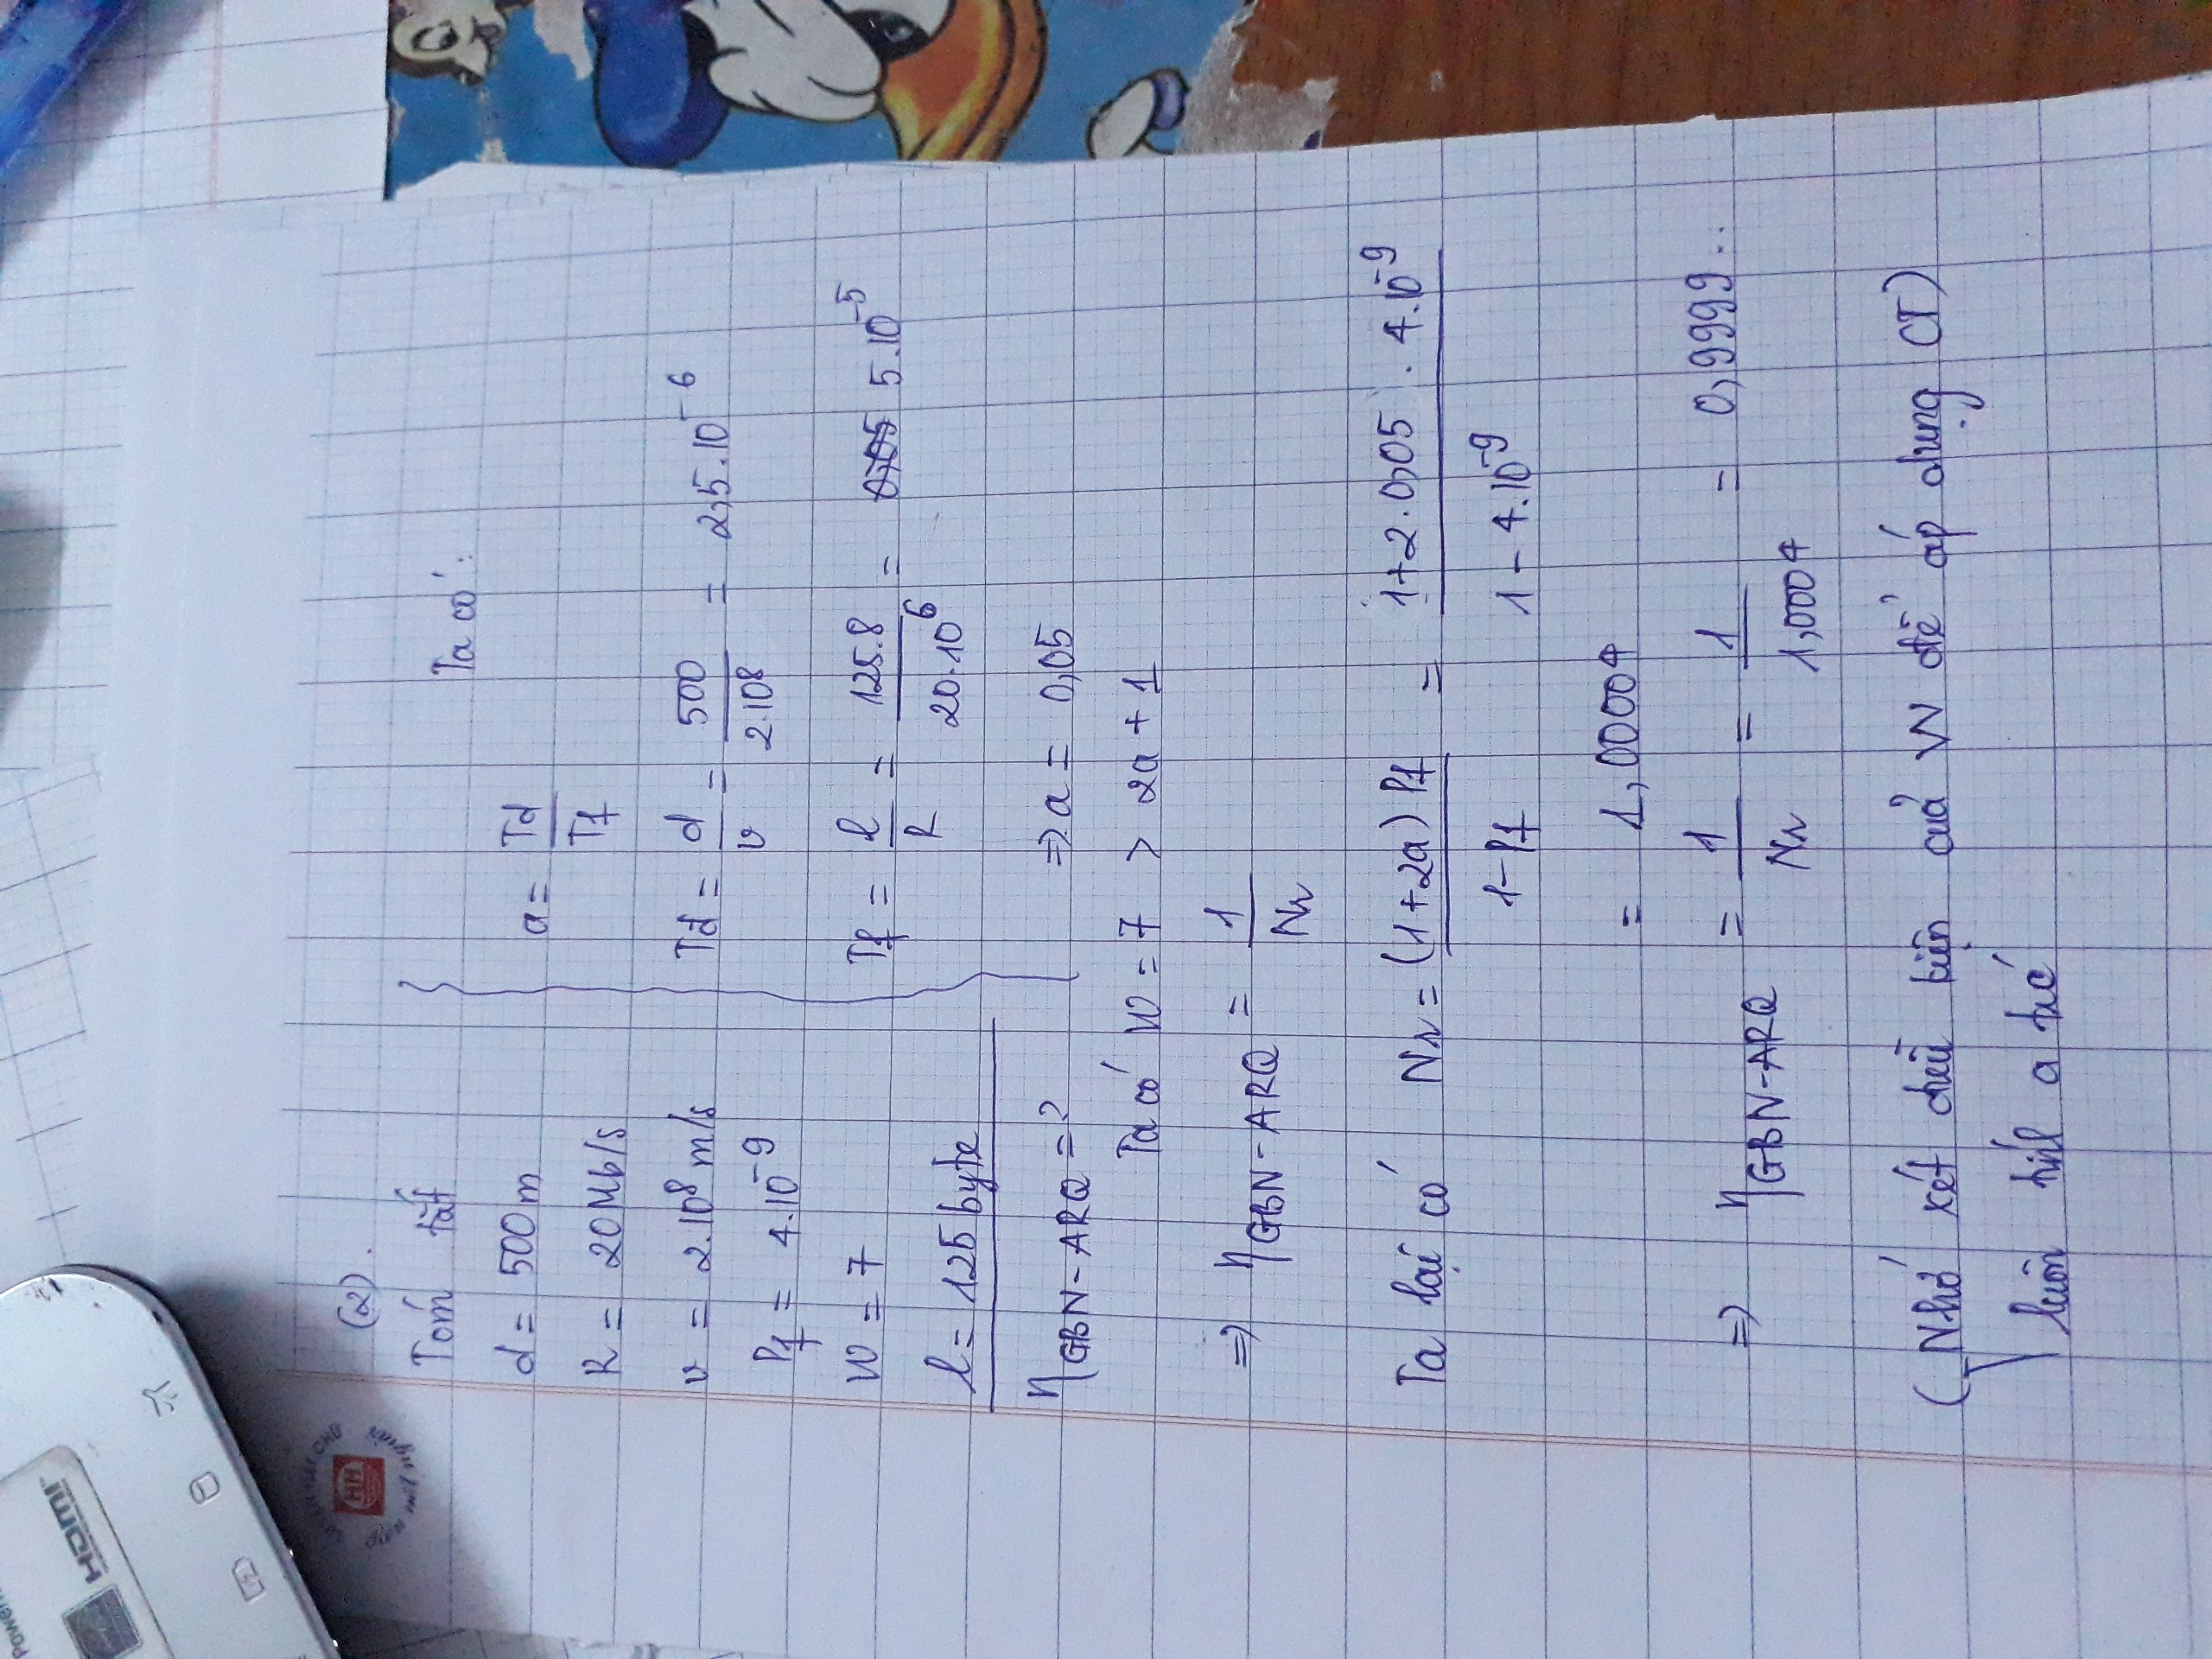 Power
HDMI
HH
(2).
Tóm tắt
d = 500 m
R = 20 Mb/s
v = 2.10^8 m/s
Pf = 4.10^-9
W = 7
l = 125 byte
η GBN-ARQ = ?
Ta có:
a = Td / Tf
Td = d / v = 500 / 2.10^8 = 2,5.10^-6
Tf = l / R = 125.8 / 20.10^6 = 5.10^-5
⇒ a = 0,05
Ta có W = 7 > 2a + 1
⇒ η GBN-ARQ = 1 / Nr
Ta lại có Nr = (1+2a) Pf / 1-Pf = 1+2.0,05 . 4.10^-9 / 1 - 4.10^-9
= 1,00004
⇒ η GBN-ARQ = 1 / Nr = 1 / 1,0004 = 0,9999..
(Nhớ xét điều kiện của W để áp dụng CT)
luôn a